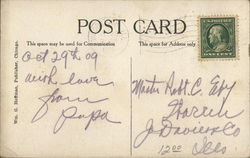 POST CARD
This space may be used for Communication
This space is for Address only
Oct 29th 09
with love
from
Papa
Master Robt. C.
Warren
Jo Daviess Co
Ills.
Wm. G. Hoffman, Publisher, Chicago.